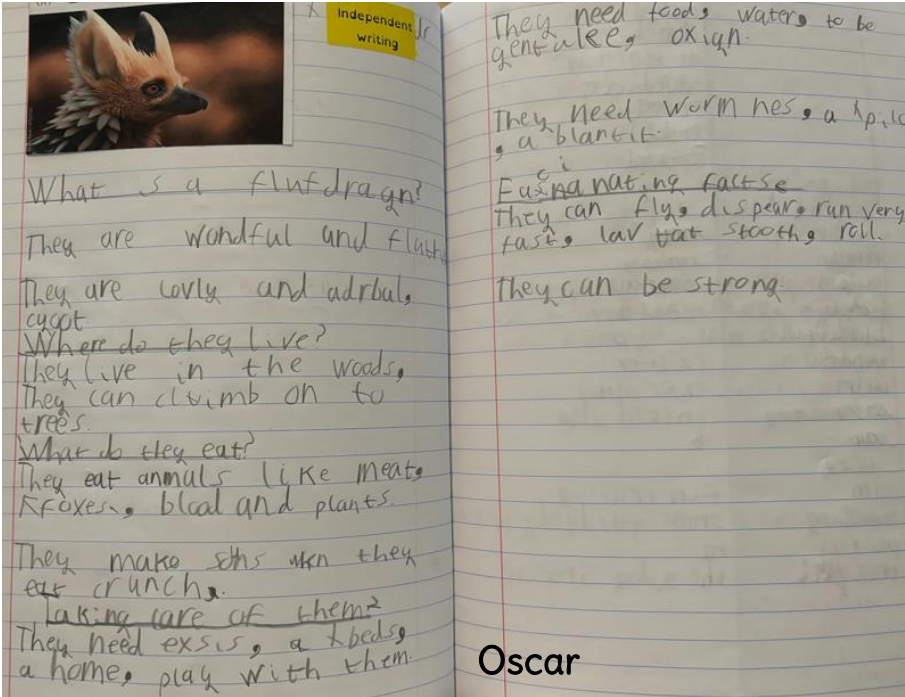 Independent
writing
What is a flufdragn?
They are wondful and
They are lovly and adrbul,
cyoot.
Where do they live?
They live in the woods,
They can cluimb on to
trees.
What do they eat?
They eat anmals like meat,
foxes, blood and plants.
They make when they
eat crunch.
Taking care of them?
They need exsis, a beds,
a home, play with them.
They need food, water, to be
gentulee, oxign.
They need worm nes, a
, a blantit.
Fasinanating factse
They can fly, dispear, run very
fast, lav stooth, roll.
They can be strong
Oscar